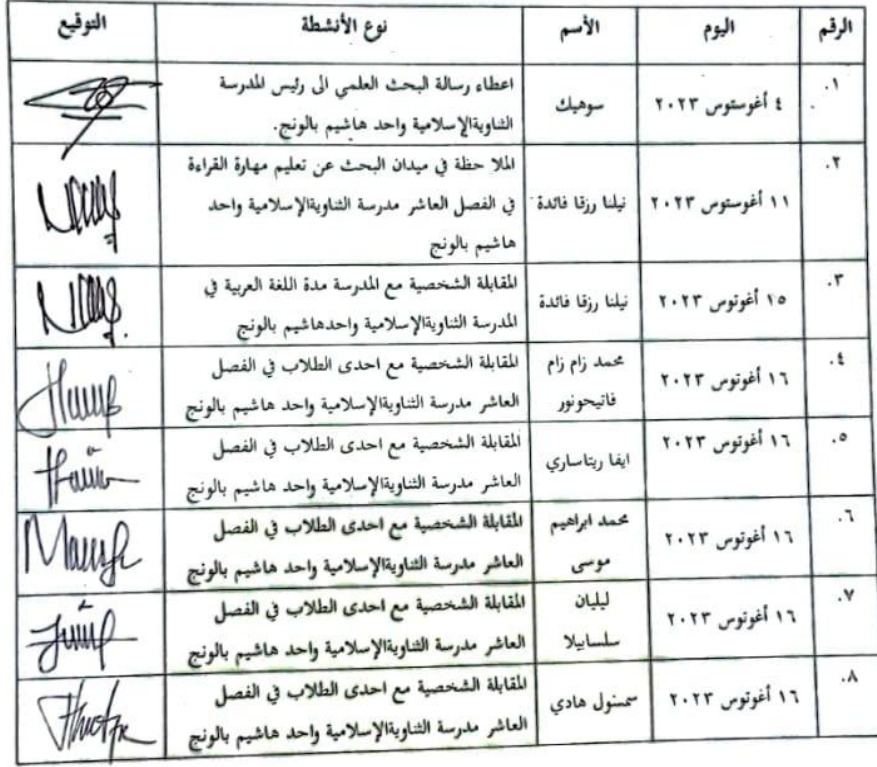 الرقم اليوم الأسم نوع الأنشطة التوقيع
.١ ٤ أغوستوس ٢٠٢٣ سوهيك اعطاء رسالة البحث العلمي الى رئيس المدرسة
الثناويةالإسلامية واحد هاشيم بالونج.
.٢ ١١ أغوستوس ٢٠٢٣ نيلنا رزقا فائدة الملا حظة في ميدان البحث عن تعليم مهارة القراءة
في الفصل العاشر مدرسة الثناويةالإسلامية واحد
هاشيم بالونج
.٣ ١٥ أغوتوس ٢٠٢٣ نيلنا رزقا فائدة المقابلة الشخصية مع المدرسة مدة اللغة العربية في
المدرسة الثناويةالإسلامية واحدهاشيم بالونج
.٤ ١٦ أغوتوس ٢٠٢٣ محمد زام زام المقابلة الشخصية مع احدى الطلاب في الفصل
فاتيحونور العاشر مدرسة الثناويةالإسلامية واحد هاشيم بالونج
.٥ ١٦ أغوتوس ٢٠٢٣ ايفا ريتاساري المقابلة الشخصية مع احدى الطلاب في الفصل
العاشر مدرسة الثناويةالإسلامية واحد هاشيم بالونج
.٦ ١٦ أغوتوس ٢٠٢٣ محمد ابراهيم المقابلة الشخصية مع احدى الطلاب في الفصل
موسى العاشر مدرسة الثناويةالإسلامية واحد هاشيم بالونج
.٧ ١٦ أغوتوس ٢٠٢٣ ليليان المقابلة الشخصية مع احدى الطلاب في الفصل
سلسابيلا العاشر مدرسة الثناويةالإسلامية واحد هاشيم بالونج
.٨ ١٦ أغوتوس ٢٠٢٣ سمسنول هادي المقابلة الشخصية مع احدى الطلاب في الفصل
العاشر مدرسة الثناويةالإسلامية واحد هاشيم بالونج